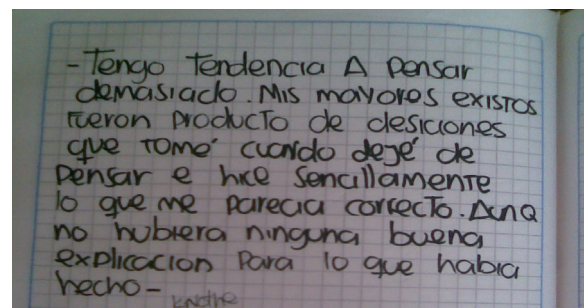 -Tengo Tendencia A pensar
demasiado. Mis mayores existos
fueron producto de desiciones
que tomé cuando dejé de
pensar e hice sencillamente
lo que me parecia correcto. Aunq
no hubiera ninguna buena
explicacion para lo que habia
hecho-